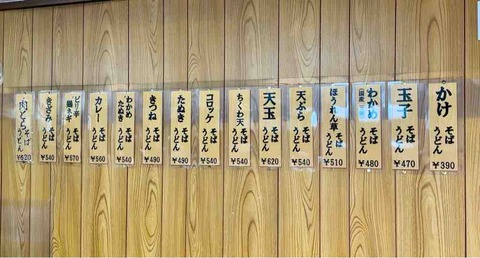 かけ そば うどん ¥390
玉子 そば うどん ¥470
わかめ そば うどん ¥480
ほうれん草 そば うどん ¥510
天ぷら そば うどん ¥540
天玉 そば うどん ¥620
ちくわ天 そば うどん ¥540
コロッケ そば うどん ¥540
たぬき そば うどん ¥490
きつね そば うどん ¥490
わかめ たぬき そば うどん ¥540
カレー そば うどん ¥560
ピリ辛 そば うどん ¥570
きざみ そば うどん ¥540
そば うどん ¥620